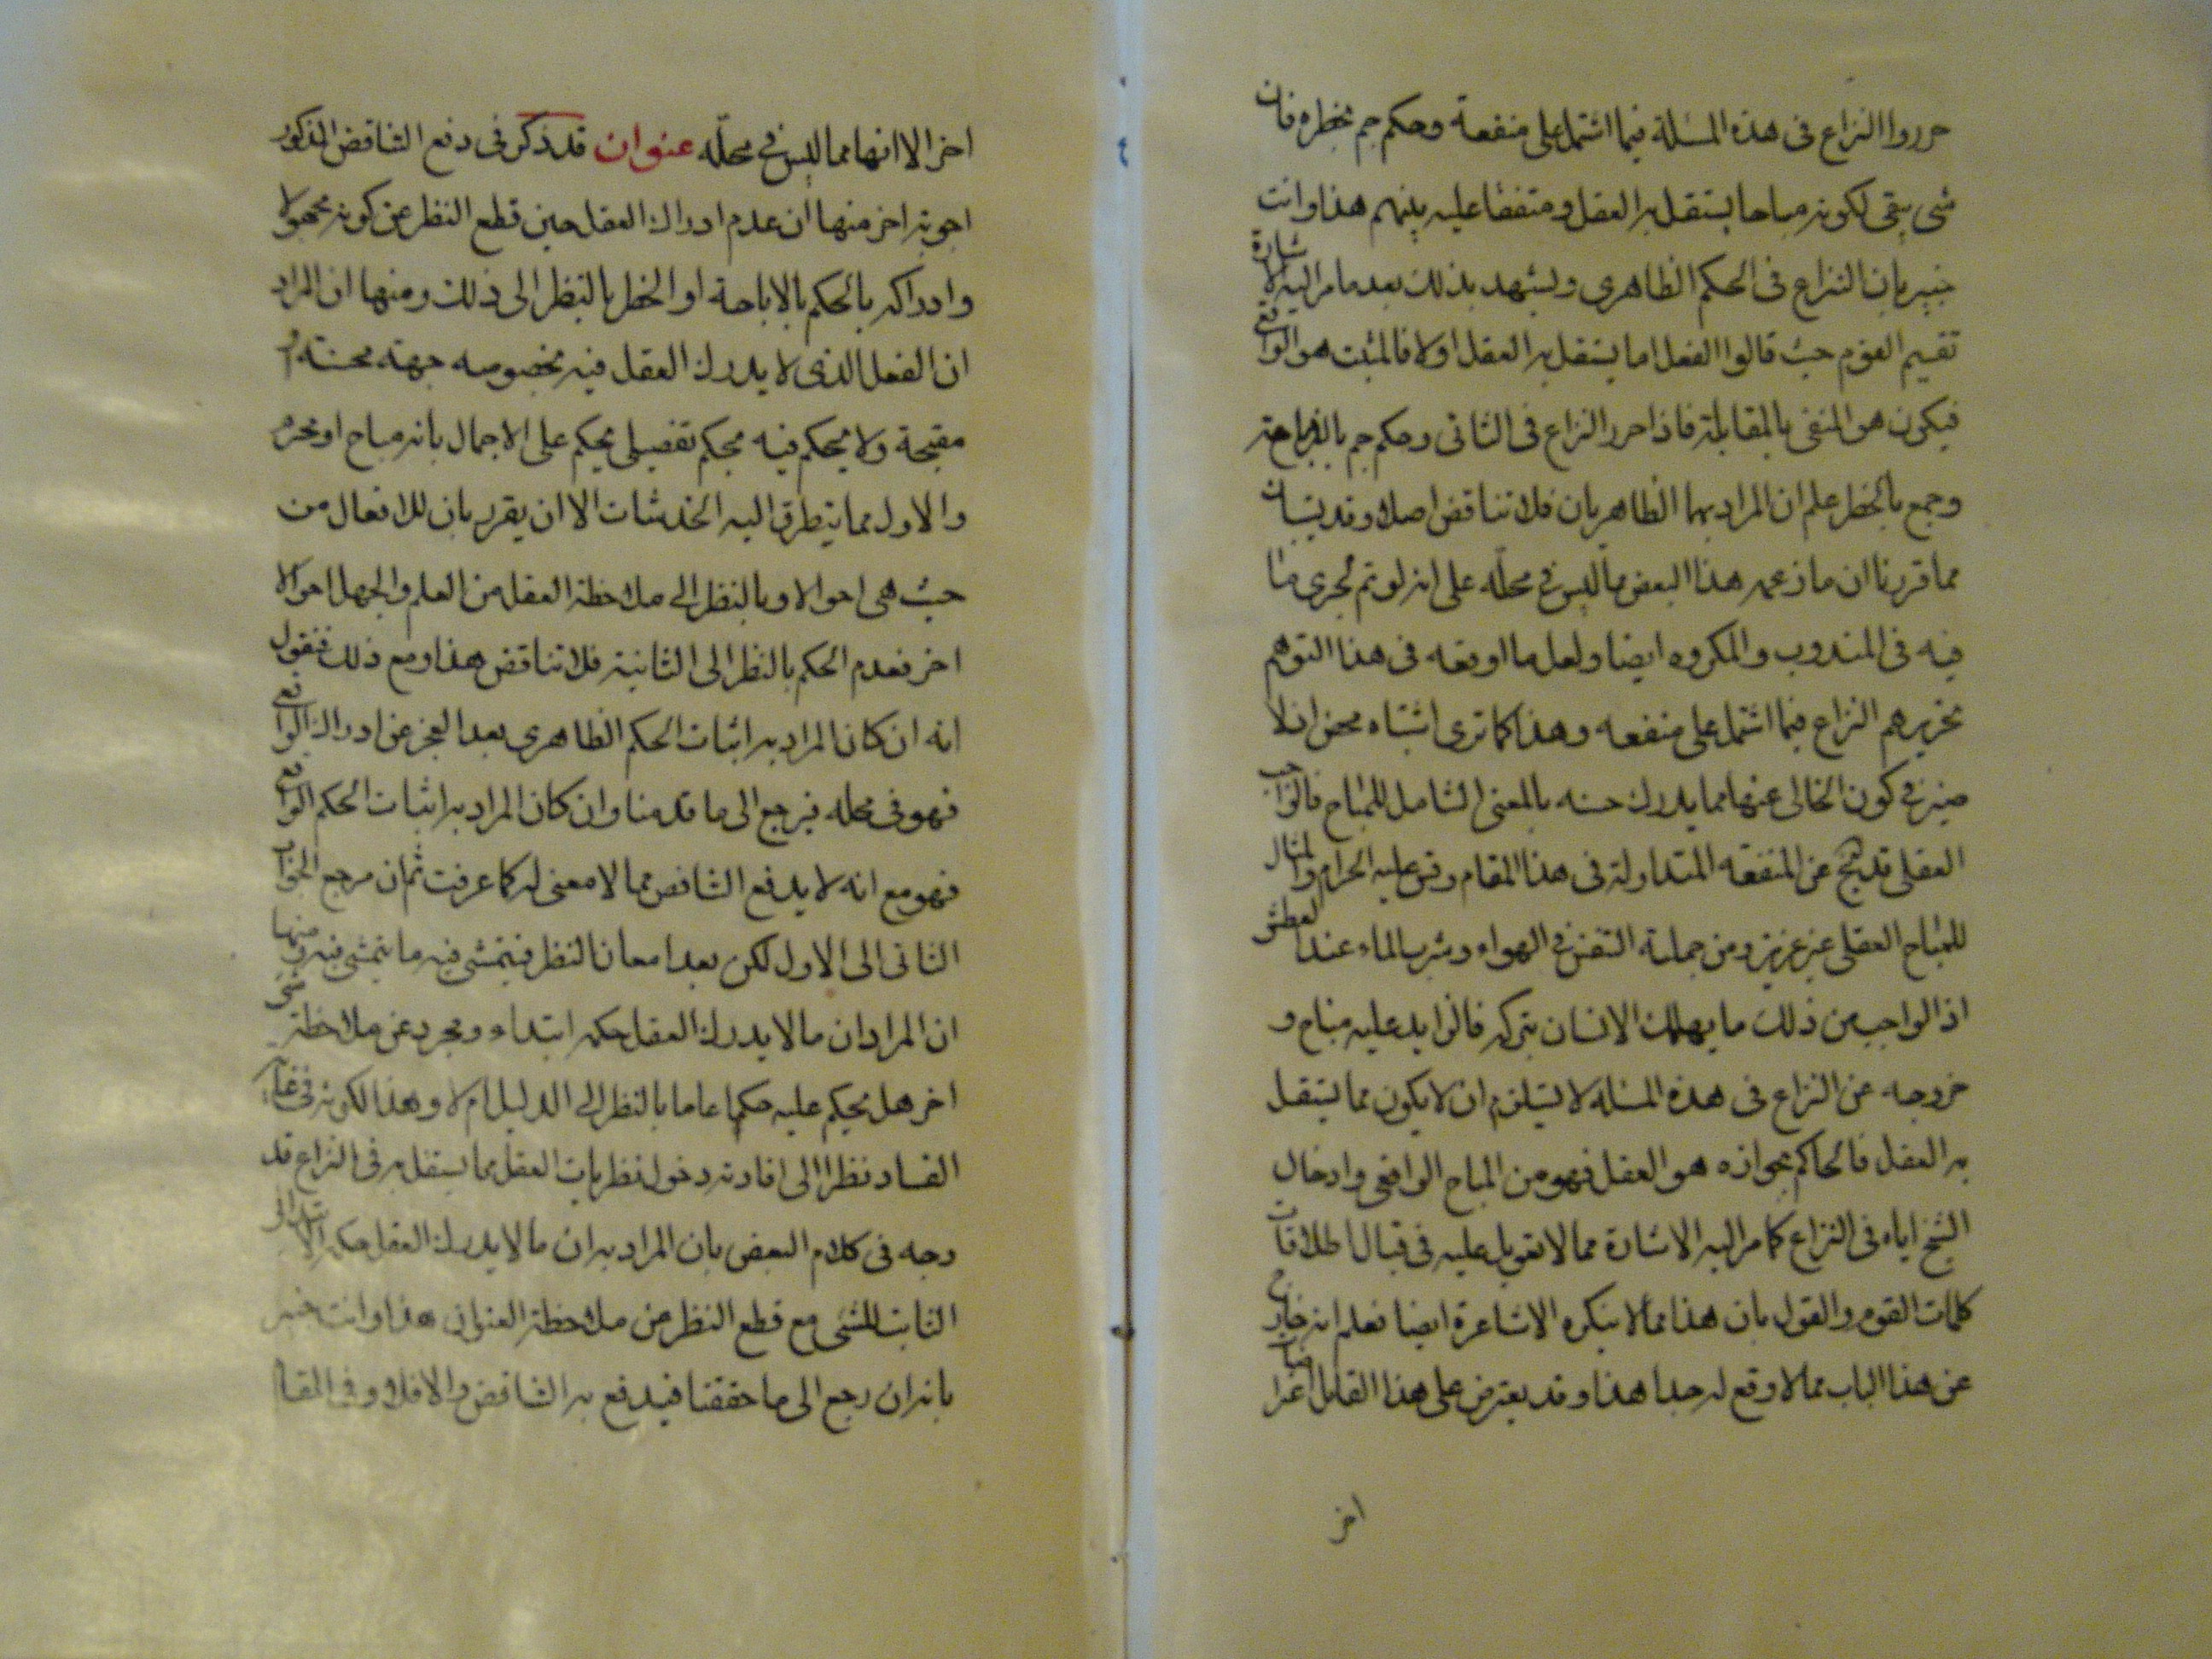 حرروا النزاع فى هذه المسئلة فيما اشتمل على منفعة وحكم جم بخطره فان
شى يبقى لكونه مباحا يستقل به العقل ومتفقا عليه بينهم هذا وانت
خبير بان النزاع فى الحكم الظاهرى ويشهد بذلك بعد ما مر اليه الاشارة
تقسيم القوم حيث قالوا الفعل اما يستقل به العقل اولا فالمثبت هو الواقعى
فيكون هو المنفى بالمقابلة فاذا حرر النزاع فى الثانى وحكم جم بالاباحة
وجمع بالخطر علم ان المراد بهما الظاهريان فلا تناقض اصلا وقد يتبان
مما قررنا ان ما زعمه هذا البعض مما ليس فى محله على انه لو تم لجرى مثا
فيه فى المندوب والمكروه ايضا ولعل ما اوقعه فى هذا التوهم
تحريرهم النزاع فيما اشتمل على منفعه وهذا كما ترى اشتباه محض اذ لا
ضير فى كون الخالى عنها مما يدرك حسنه بالمعنى الشامل للمباح فالواجب
العقلى قد يخ عن المنفعة المتداولة فى هذا المقام وقس عليه الحرام والمثال
للمباح العقلى غير عزيز ومن جملته التنفس فى الهواء وشرب الماء عند العطش
اذ الواجب من ذلك ما يهلك الانسان بتركه فالزايد عليه مباح و
خروجه عن النزاع فى هذه المسئلة لا يستلزم ان لا يكون مما يستقل
به العقل فالحاكم بجوازه هو العقل فهو من المباح الواقعى وادخال
الشيخ اياه فى النزاع كما مر اليه الاشارة مما لا تعويل عليه فى قبال اطلاقات
كلمات القوم والقول بان هذا مما لا ينكره الاشاعرة ايضا فعلم انه خارج
عن هذا الباب مما لا وقع له جدا هذا وقد يعترض على هذا القايل اعتراضات
اخر
اخر الا انها مما ليس فى محله عنوان قد ذكر فى دفع التناقض المذكور
اجوبة اخر منها ان عدم ادراك العقل حين قطع النظر عن كونه مجهولا
وادراكه بالحكم بالاباحة او الخطر بالنظر الى ذلك ومنها ان المراد
ان الفعل الذى لا يدرك العقل فيه بخصوصه جهة محسنة او
مقبحة ولا يحكم فيه بحكم تفصيلى يحكم على الاجمال بانه مباح او محرم
والاول مما يتطرق اليه الخدشات الا ان يقرر بان للافعال من
حيث هى احوالا وبالنظر الى ملاحظة العقل من العلم والجهل احوالا
اخر فعدم الحكم بالنظر الى الثانية فلا تناقض هذا ومع ذلك فنقول
انه ان كان المراد به اثبات الحكم الظاهرى بعد العجز عن ادراك الواقعى
فهو فى محله فيرجع الى ما قدمنا وان كان المراد به اثبات الحكم الواقعى
فهو مع انه لا يدفع التناقض مما لا معنى له كما عرفت ثم ان مرجع الجواب
الثانى الى الاول لكن بعد امعان النظر فيتمشى فيه ما يتمشى فيه ومنها
ان المراد ان ما لا يدرك العقل حكمه ابتداء ومجرد عن ملاحظة شى
اخر هل يحكم عليه حكما عاما بالنظر الى الدليل ام لا وهذا لكونه فى غاية
الفساد نظرا الى افادته دخول نظريات العقل مما يستقل به فى النزاع قد
وجه فى كلام البعض بان المراد به ان ما لا يدرك العقل حكمه الابتدائى
الثابت للشى مع قطع النظر عن ملاحظة العنوان هذا وانت خبير
بانه ان رجع الى ما حققنا فيدفع به التناقض والا فلا وفى المقا